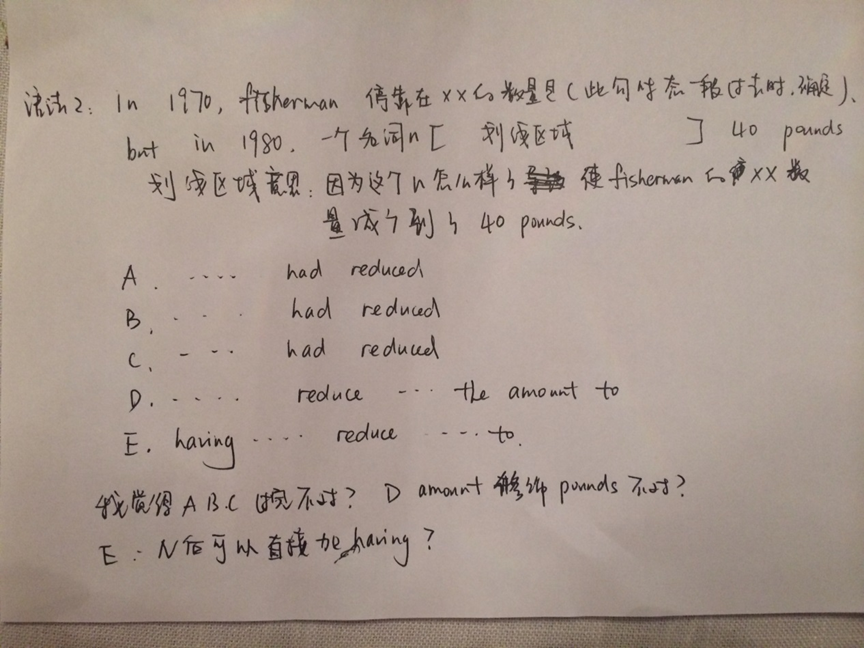 语法2: In 1970, fisherman 停靠在 XX的数量是(此句时态一般过去时,确定)、
but in 1980, 一个名词n [ 划线区域 ] 40 pounds
划线区域意思: 因为这个n怎么样了 使fisherman的 XX 数
量减少到了 40 pounds.
A. .... had reduced
B. ... had reduced
C. --.. had reduced
D. ..... reduce --.. the amount to
E. having .... reduce ..... to.
我觉得ABC 时完不对? D amount 修饰 pounds 不对?
E: N后可以直接加having?